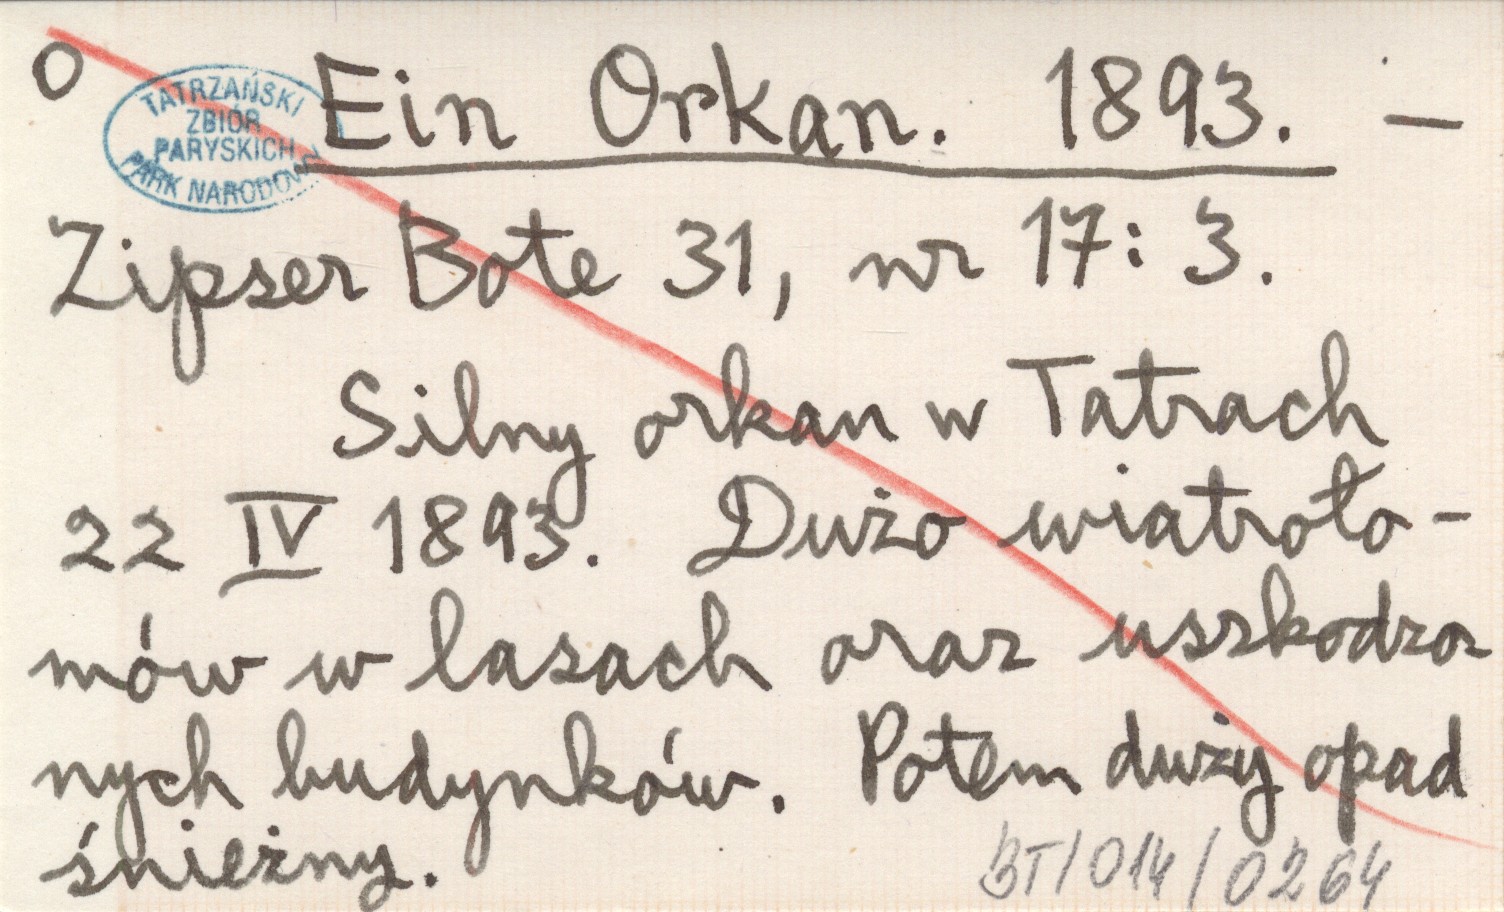 O Ein Orkan. 1893. —
TATRZAŃSKI
ZBIÓR
PARYSKICH
PARK NARODOWY
Zipser Bote 31, nr 17: 3.
Silny orkan w Tatrach
22 IV 1893. Dużo wiatroło-
mów w lasach oraz uszkodzo-
nych budynków. Potem duży opad
śnieżny.
BT/014/0264